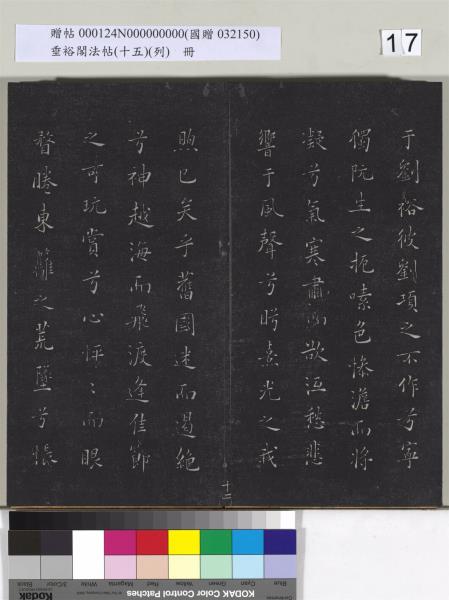 贈帖 000124N000000000(國贈 032150)
垂裕閣法帖(十五)(列) 冊
17
于劉裕彼劉項之不作兮寧
獨阮生之扼嗉色慘澹而將
凝兮氣寒肅而欲沍愁悲
響于風聲兮盻熹光之我
煦已矣乎舊國迷而遏絶
兮神越海而飛渡逢佳節
之可玩賞兮心怦〻而眼
瞀睠東籬之荒墜兮悵
十二
Black
3/Color
White
Magenta
Red
Yellow
Green
Cyan
Blue
Kodak
KODAK Color Control Patches